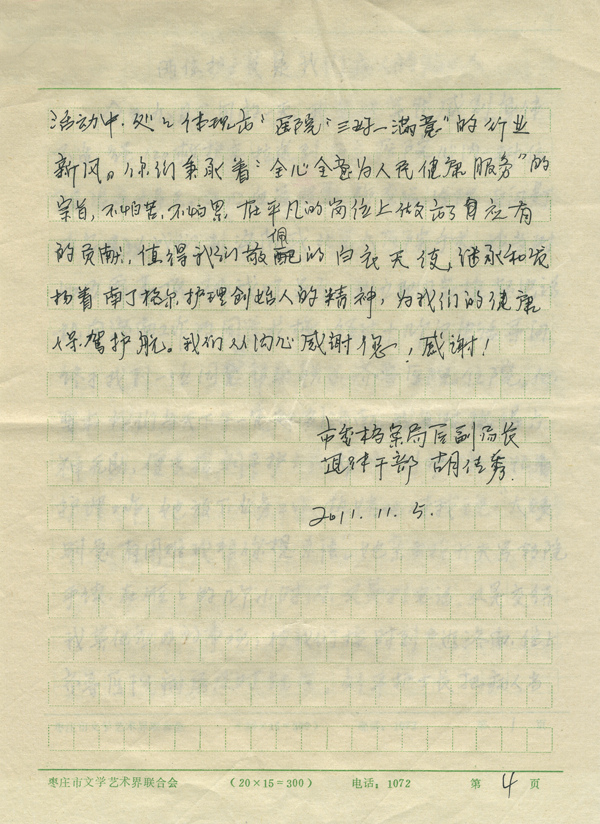 活动中.处处体现出"医院"三好一满意"的行业
新风。你们秉承着"全心全意为人民健康服务"的
宗旨,不怕苦,不怕累,在平凡的岗位上做出了自己应有
的贡献,值得我们敬佩的白衣天使,继承和发
扬着南丁格尔护理创始人的精神,为我们的健康
保驾护航。我们从内心感谢您!感谢!
市委档案局原副局长
退休干部 胡传秀.
2011.11.5.
枣庄市文学艺术界联合会 (20×15=300) 电话:1072 第 4 页